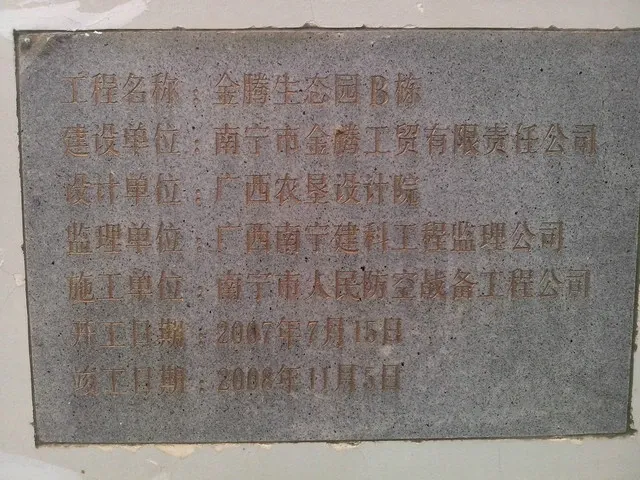 工程名称：金腾生态园B栋
建设单位：南宁市金腾工贸有限责任公司
设计单位：广西农垦设计院
监理单位：广西南宁建科工程监理公司
施工单位：南宁市人民防空战备工程公司
开工日期：2007年7月15日
竣工日期：2008年11月5日